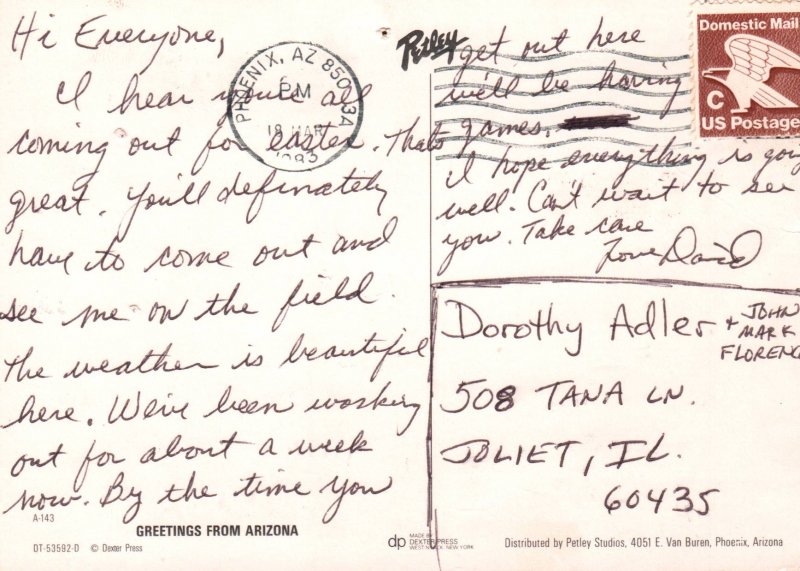 Hi Everyone,
I hear you're all
coming out for easter. Thats
great. You'll definately
have to come out and
see me on the field.
The weather is beautiful
here. We've been working
out for about a week
now. By the time you
A-143
GREETINGS FROM ARIZONA
DT-53592-D © Dexter Press
PHOENIX, AZ 850
PM
18 MAR
1983
Petley
get out here
we'll be having
games.
I hope everything is going
well. Can't wait to see
you. Take care
Love David
Domestic Mail
C
US Postage
Dorothy Adler + JOHN
MARK
FLORENC
508 TANA LN.
JOLIET, IL.
60435
dp MADE BY
DEXTER PRESS
WEST NYACK, NEW YORK
Distributed by Petley Studios, 4051 E. Van Buren, Phoenix, Arizona